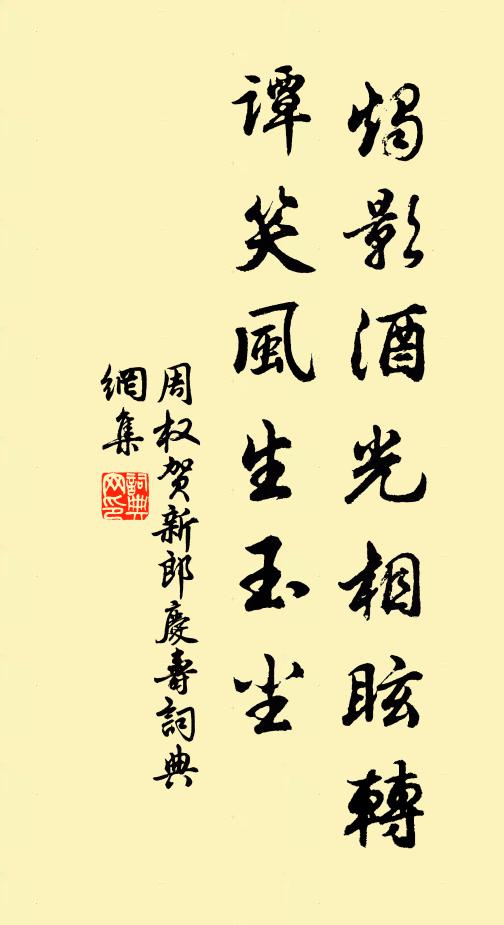 烛影酒光相眩轉
谭笑風生玉尘
周权贺新郎慶壽詞典
網集
詞典网印